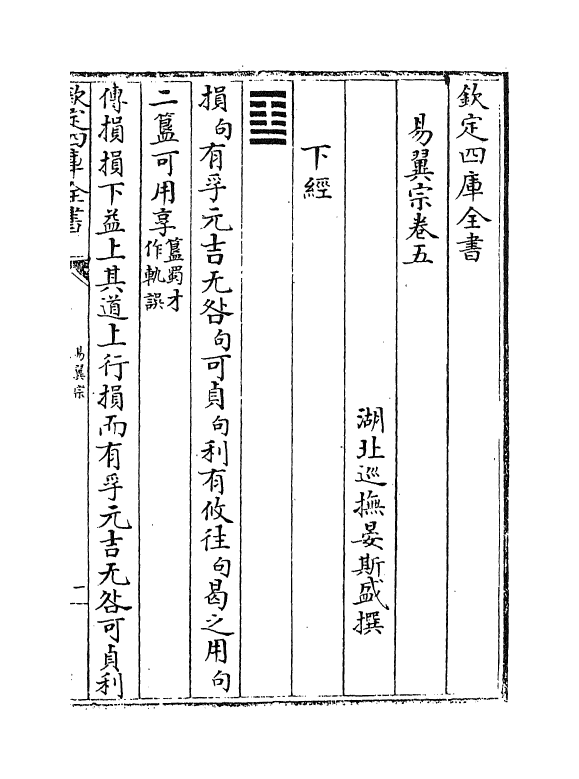 欽定四庫全書
易翼宗卷五
湖北巡撫晏斯盛撰
下經
損句有孚元吉无咎句可貞句利有攸往句曷之用句
二簋可用享簋蜀才作軌誤
傳損損下益上其道上行損而有孚元吉无咎可貞利
欽定四庫全書
易翼宗